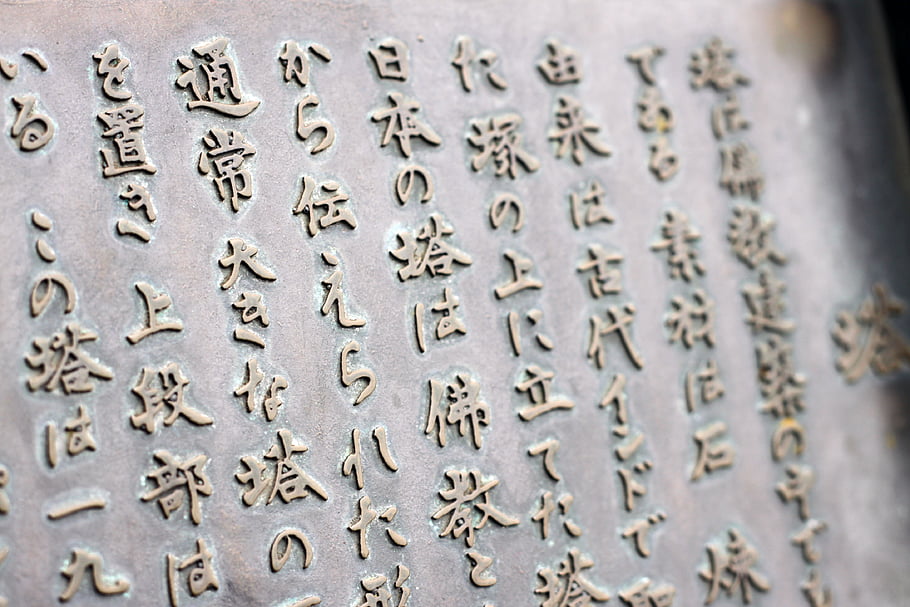 塔
塔は佛教建築の中でも
である 素材は石 煉
由来は古代インドで聖
た塚の上に立てた塔
日本の塔は佛教と
から伝えられた形
通常大きな塔の
を置き上段部は
いる この塔は一九